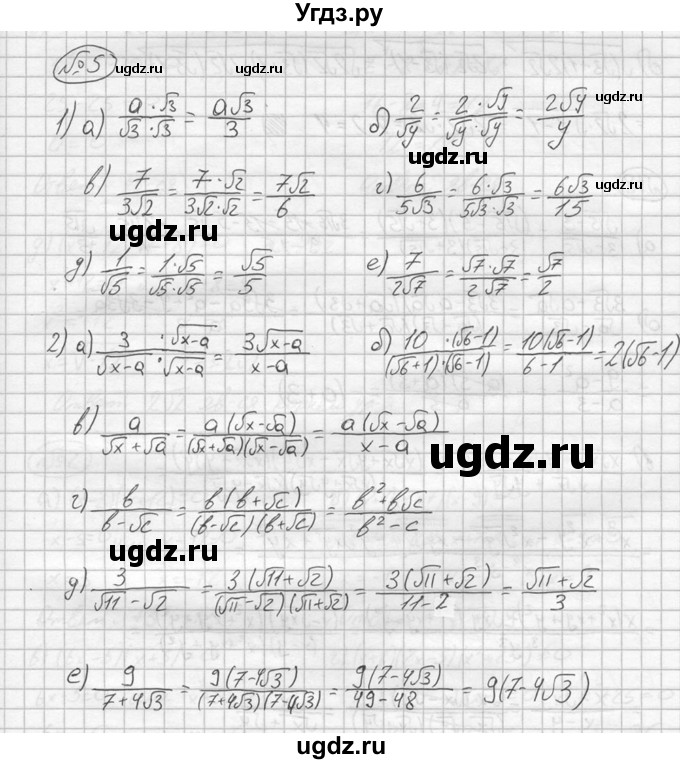 Угдз.ру
№5
ugdz.ru ugdz.ru ugdz.ru
1) а) a·√3/√3·√3 = a√3/3 б) 2/√y = 2·√y/√y·√y = 2√y/y
ugdz.ru ugdz.ru
в) 7/3√2 = 7·√2/3√2·√2 = 7√2/6 г) 6/5√3 = 6·√3/5√3·√3 = 6√3/15
ugdz.ru ugdz.ru
д) 1/√5 = 1·√5/√5·√5 = √5/5 е) 7/2√7 = √7·√7/2√7 = √7/2
2) а) 3·√x-a/√x-a·√x-a = 3√x-a/x-a б) 10·(√6-1)/(√6+1)·(√6-1) = 10(√6-1)/6-1 = 2(√6-1)
в) a/√x+√a = a(√x-√a)/(√x+√a)(√x-√a) = a(√x-√a)/x-a
ugdz.ru
г) b/b-√c = b(b+√c)/(b-√c)(b+√c) = b²+b√c/b²-c
ugdz.ru ugdz.ru
д) 3/√11-√2 = 3(√11+√2)/(√11-√2)(√11+√2) = 3(√11+√2)/11-2 = √11+√2/3
е) 9/7+4√3 = 9(7-4√3)/(7+4√3)(7-4√3) = 9(7-4√3)/49-48 = 9(7-4√3)
ugdz.ru